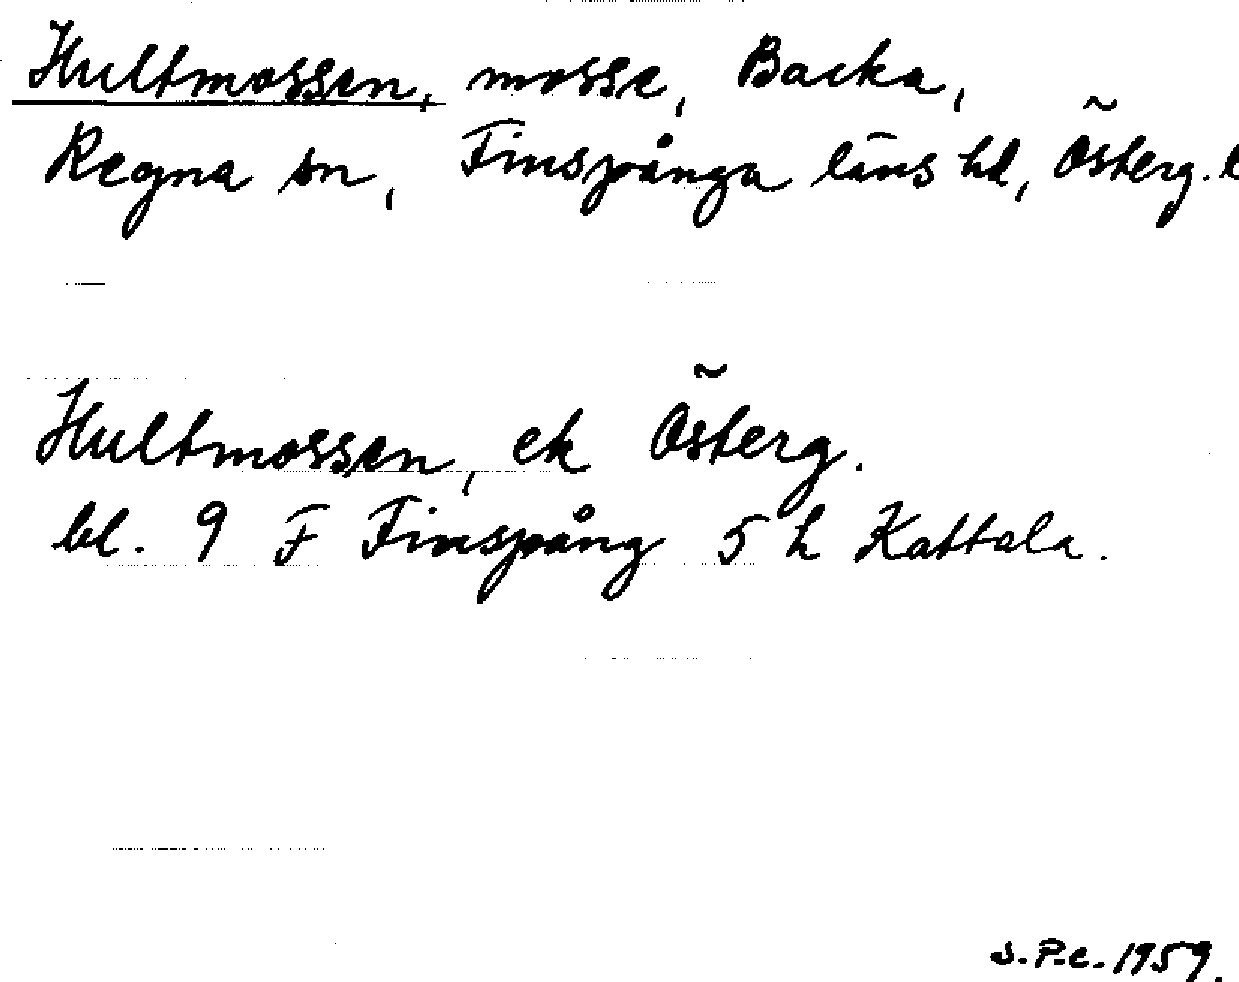 Hultmossen, mosse, Backa,
Regna sn, Finspånga läns hd, Österg. l
Hultmossen, ek Österg.
bl. 9 F Finspång 5 h Kattala.
S.P.C. 1959.